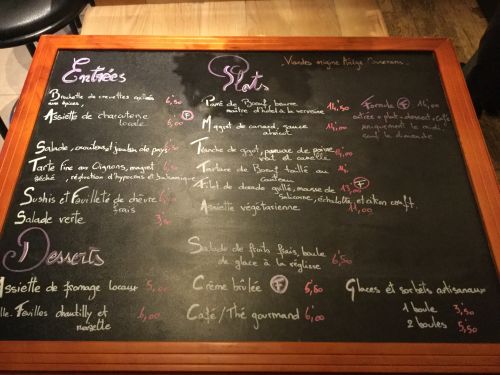 Entrées
Brochette de crevettes
aux épices, 6,50
Assiette de charcuterie F
locale 6,00
Salade, croutons et jambon de pays
Tarte fine aux Oignons, magret
séché, réduction d'hypocras et balsamique
Sushis et Feuilleté de chèvre
frais
Salade verte 3,50
Plats
- Viandes origine
Pavé de Boeuf, beurre
maître d'hôtel à la verveine 14,50
Magret de canard, sauce
14,00
Tranche de gigot,
vert et cumelle
Tartare de Boeuf taillé au
couteau 14,00
Filet de dorade grillé, mousse de 13,00 F
salicorne, échalotte, et citron confit.
Assiette végétarienne 11,00
Formule F 14,00
entrée + plat + dessert + café
uniquement le midi
sauf le dimanche
Desserts
Assiette de fromage locaux 5,00
Feuilles chantilly et
noisette 6,00
Salade de fruits frais, boule
de glace à la réglisse 6,50
Crème brûlée F 5,50
Café/Thé gourmand 6,00
Glaces et sorbets artisanaux
1 boule 3,50
2 boules 5,50